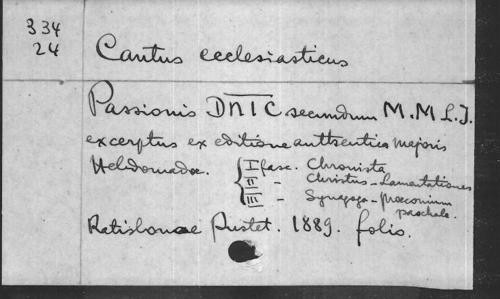 334
24
Cantus ecclesiasticus
Passionis DNIC secundum M. M L. J.
excerptus ex editione authentica majoris
Hebdomadae. I fasc. Chronista
II - Christus - Lamentationes
III - Synagoga - Praeconium
paschale.
Ratisbonae Pustet. 1889. folio.